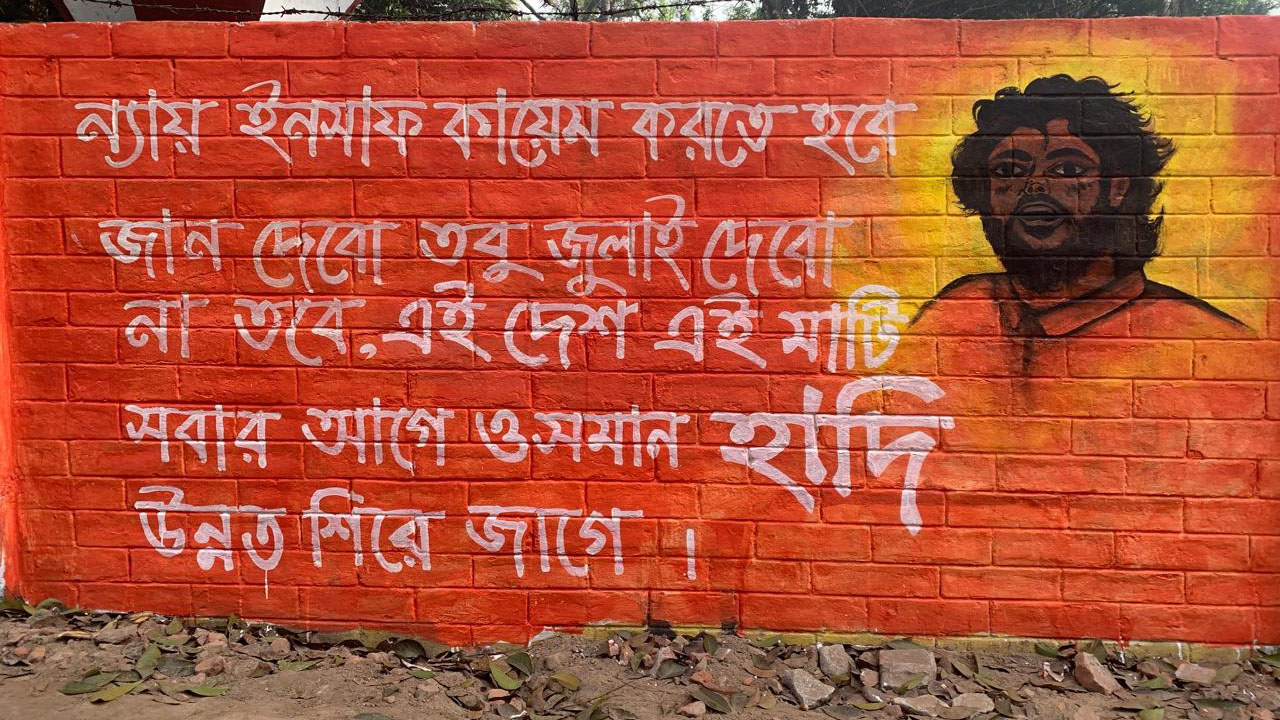 ন্যায় ইনসাফ কায়েম করতে হবে
জান দেবো তবু জুলাই দেবো
না তবে, এই দেশ এই মাটি
সবার আগে ওসমান হাদি
উন্নত শিরে জাগে ।